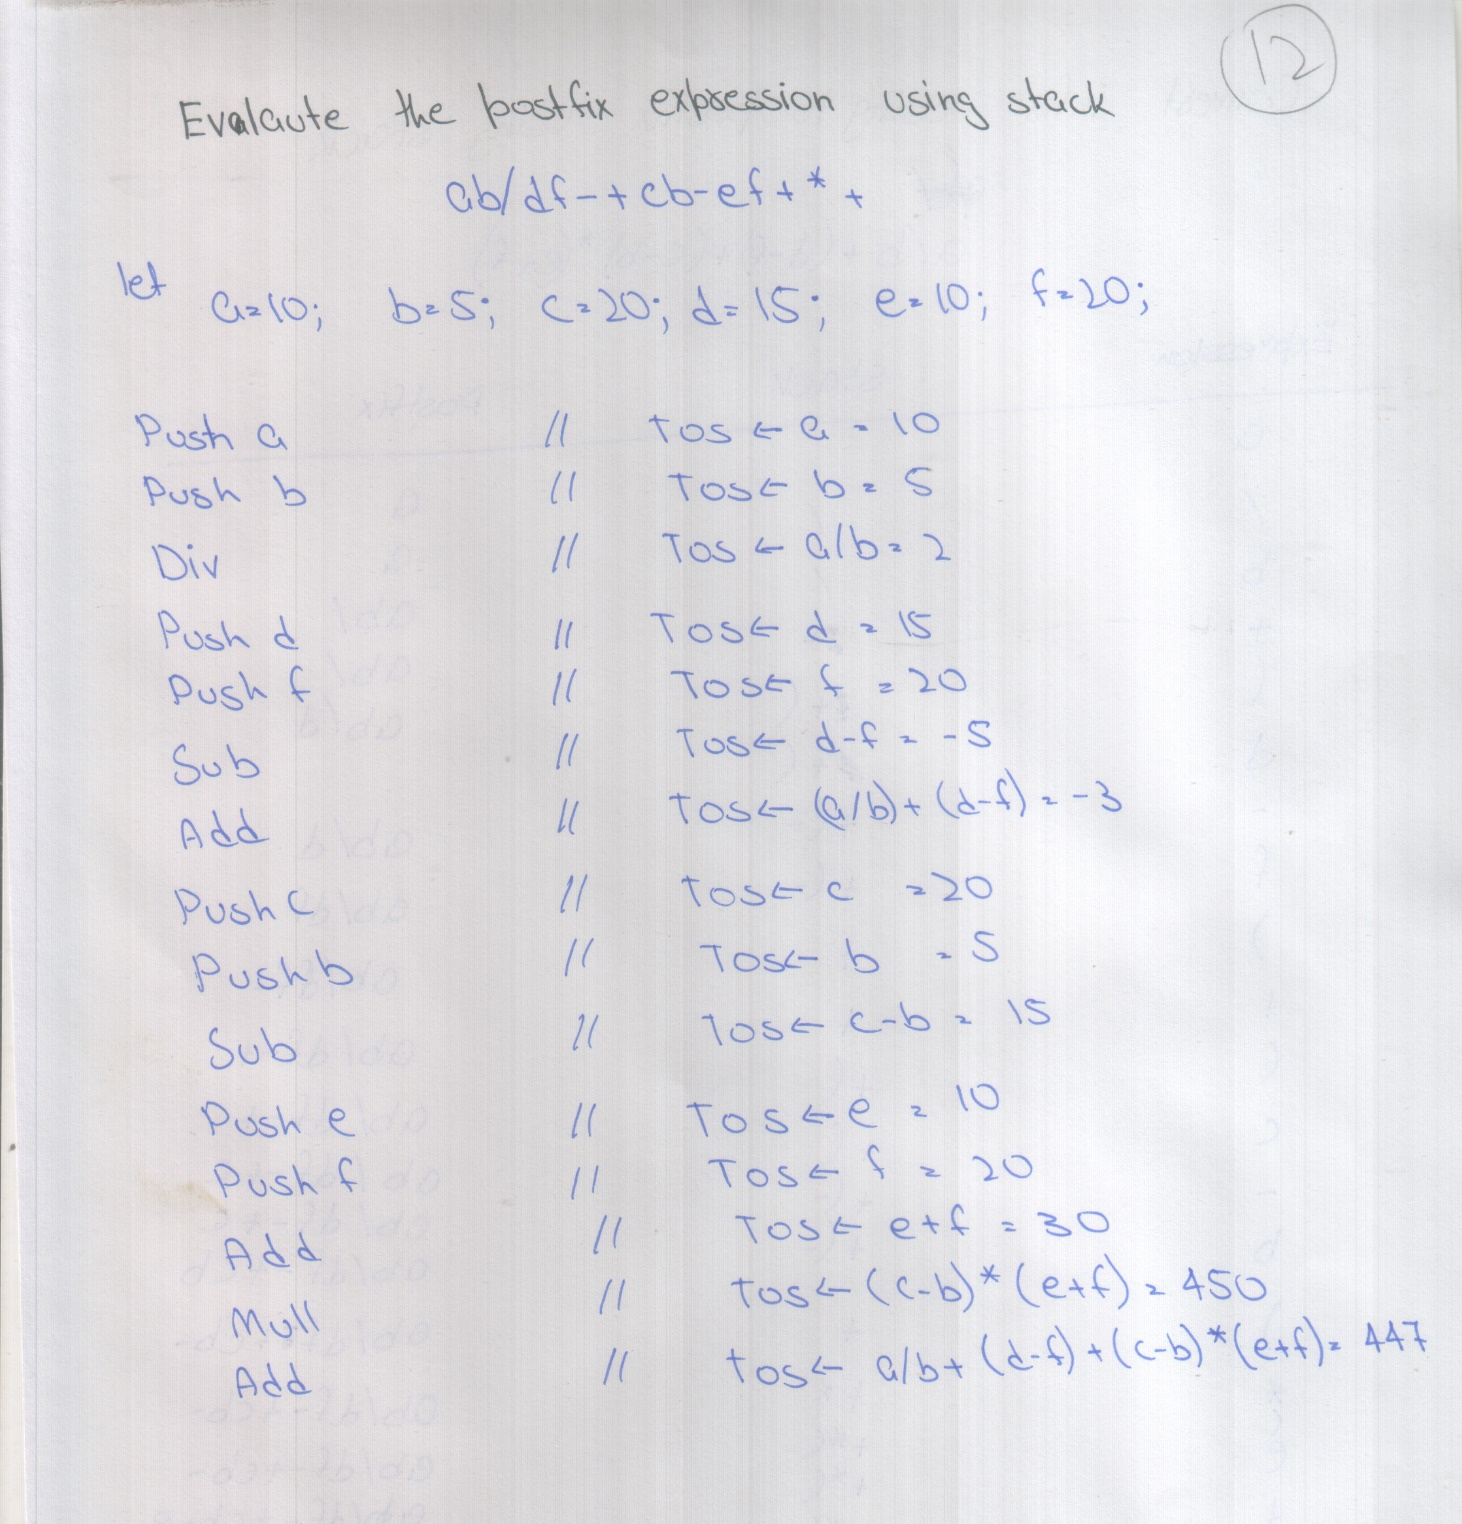 12
Evalaute the postfix expression using stack
ab/df-+cb-ef+*+
let a=10; b=5; c=20; d=15; e=10; f=20;
Push a // Tos ← a = 10
Push b // Tos ← b = 5
Div // Tos ← a/b = 2
Push d // Tos ← d = 15
Push f // Tos ← f = 20
Sub // Tos ← d-f = -5
Add // Tos ← (a/b)+(d-f) = -3
Push c // Tos ← c = 20
Push b // Tos ← b = 5
Sub // Tos ← c-b = 15
Push e // Tos ← e = 10
Push f // Tos ← f = 20
Add // Tos ← e+f = 30
Mull // Tos ← (c-b)*(e+f) = 450
Add // Tos ← a/b+(d-f)+(c-b)*(e+f) = 447